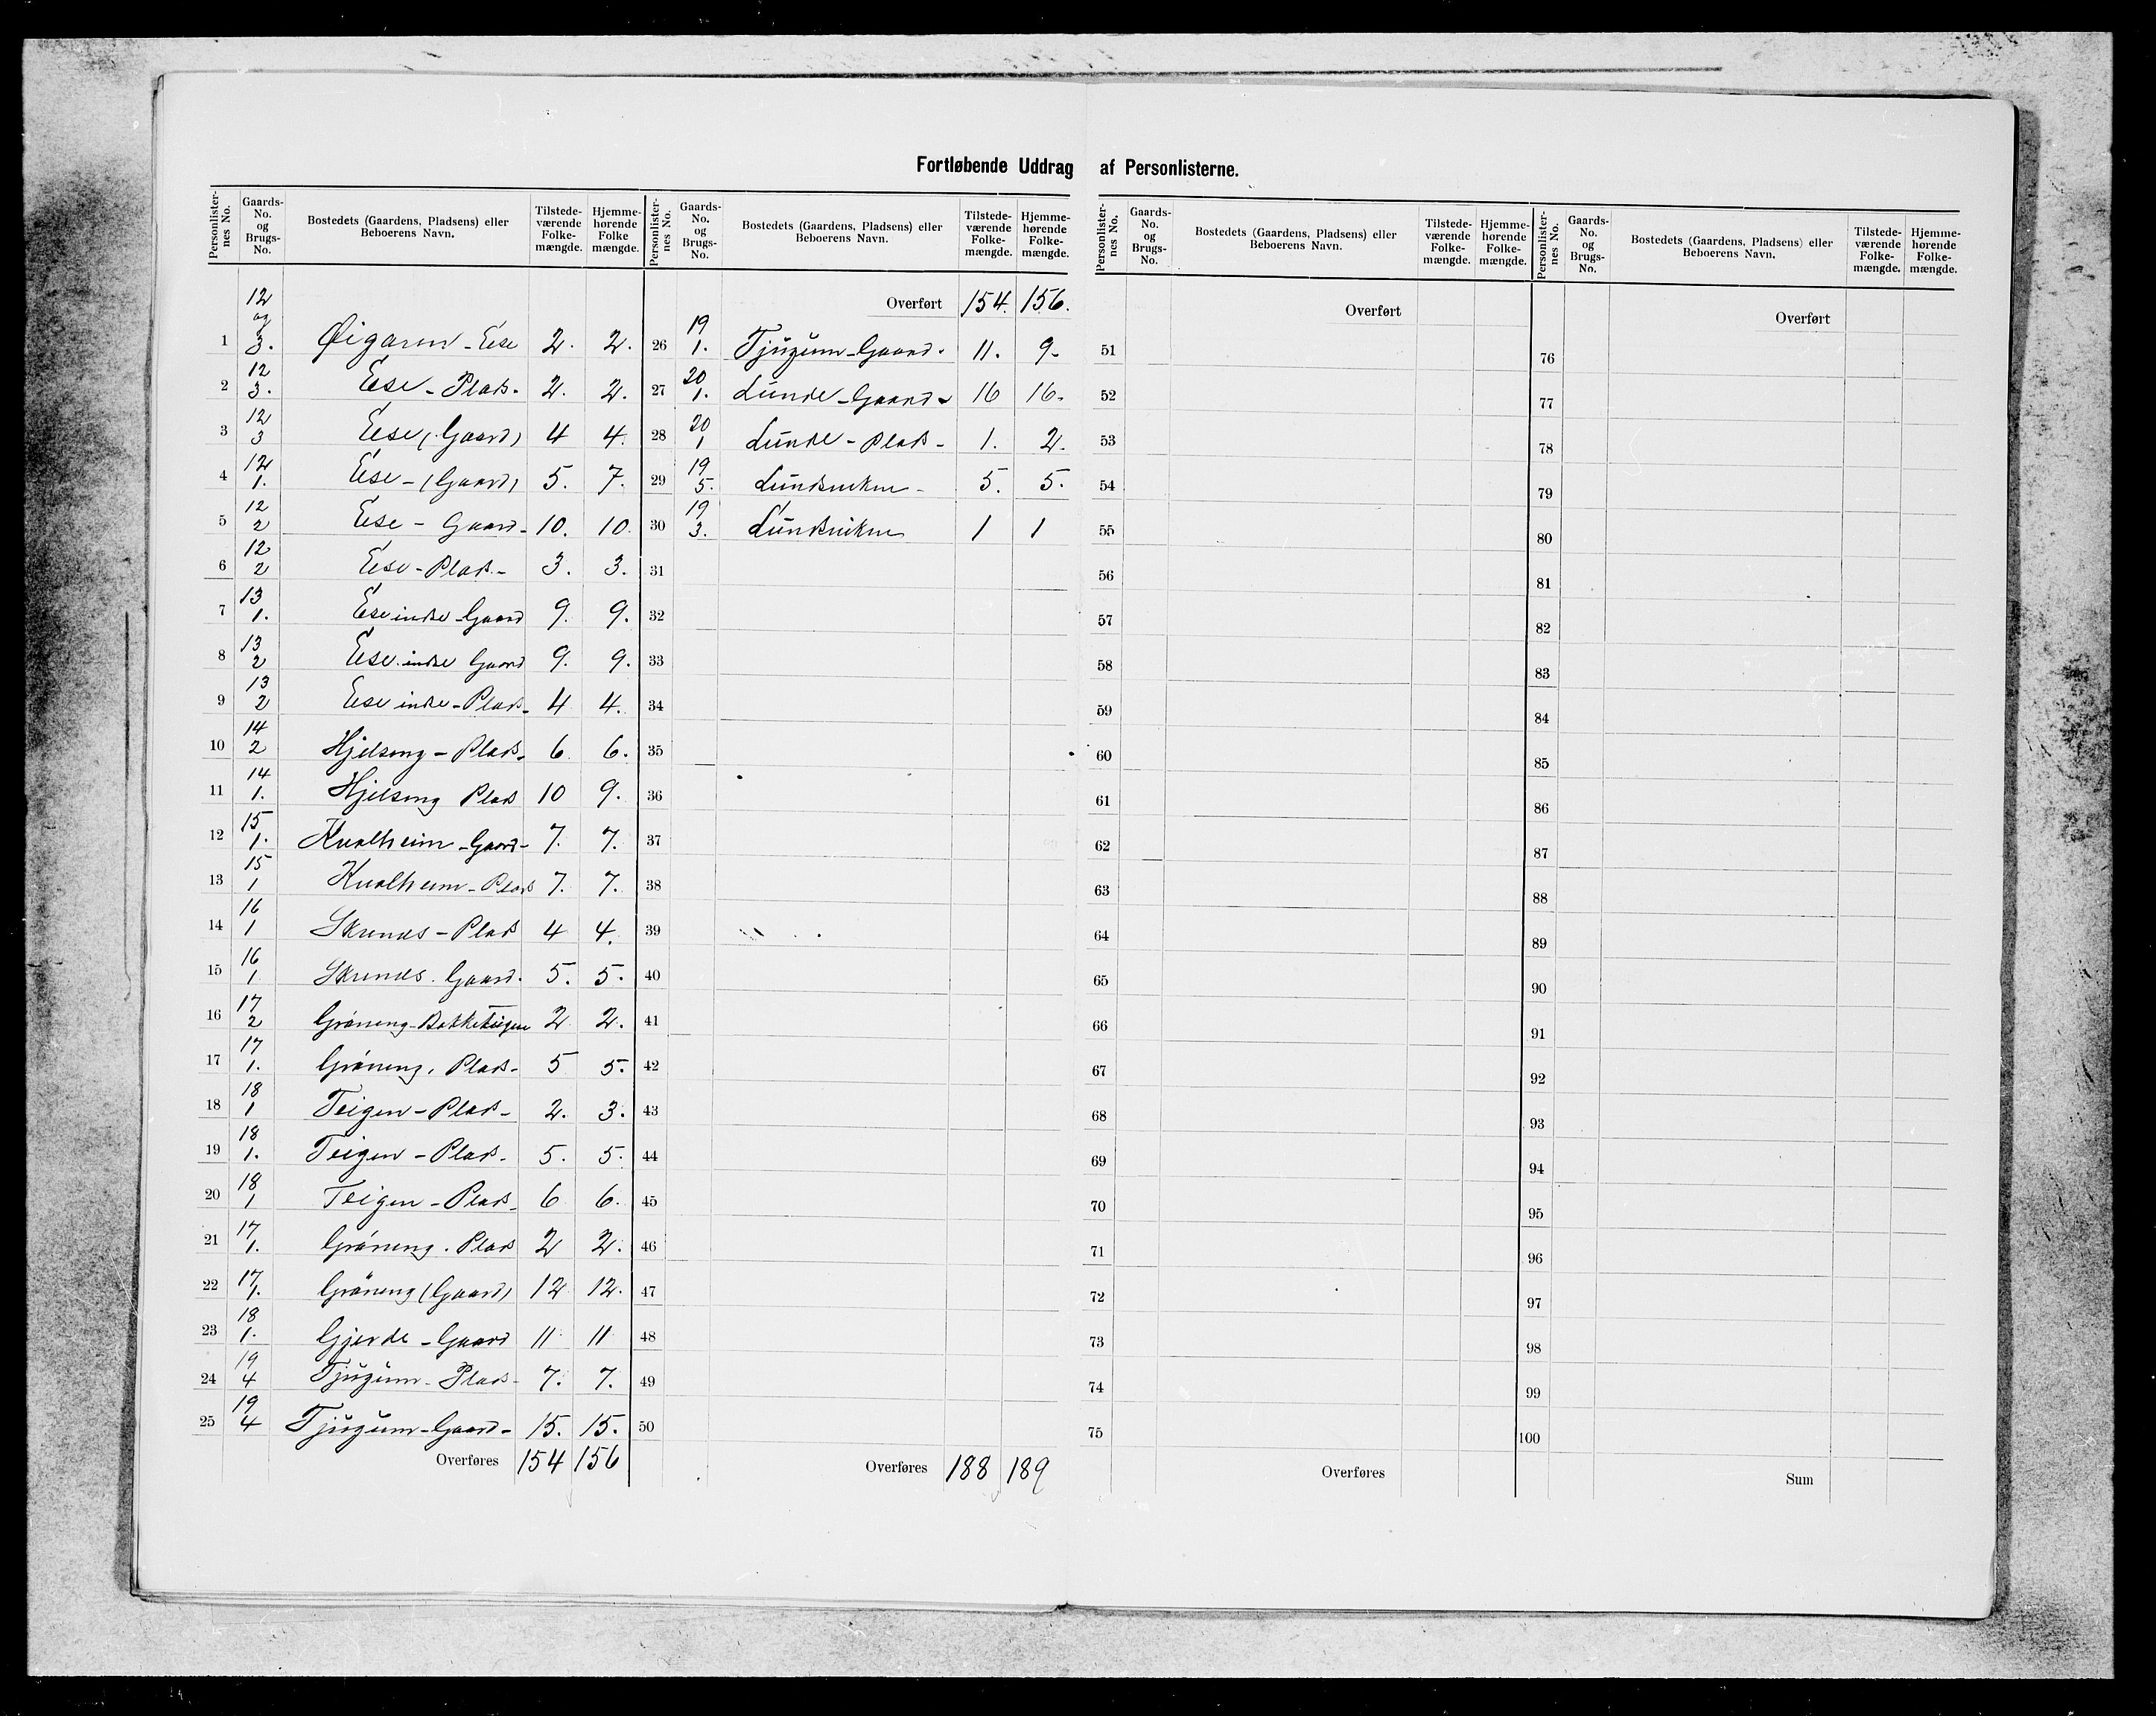 Fortløbende Uddrag af Personlisterne.
Personlister-nes No. | Gaards-No. og Brugs-No. | Bostedets (Gaardens, Pladsens) eller Beboerens Navn. | Tilstede-værende Folke-mængde. | Hjemme-hørende Folke mængde.
1 | 12 og 3. | Øigarn - Ese | 2. | 2.
2 | 12 3. | Ese - Plads. | 2. | 2.
3 | 12 3 | Ese (Gaard) | 4 | 4.
4 | 12 1. | Ese - (Gaard) | 5. | 7.
5 | 12 2 | Ese - Gaard - | 10. | 10.
6 | 12 2 | Ese - Plads. - | 3. | 3.
7 | 13 1. | Ese indre - Gaard | 9. | 9.
8 | 13 2 | Ese. indre Gaard | 9. | 9.
9 | 13 2 | Ese indre - Plads - | 4 | 4.
10 | 14 2 | Hjelseng - Plads. | 6 | 6.
11 | 14 1. | Hjelseng Plads | 10 | 9.
12 | 15 1. | Kvalheim - Gaard - | 7. | 7.
13 | 15 1 | Kvalheim - Plads | 7. | 7.
14 | 16 1 | - Plads | 4 | 4.
15 | 16 1. | . Gaard. | 5. | 5.
16 | 17 2 | Grøneng - Bakketeigen | 2 | 2.
17 | 17 1. | Grøneng. Plads - | 5 | 5.
18 | 18 1 | Teigen - Plads - | 2. | 3.
19 | 18 1. | Teigen - Plads. | 5. | 5.
20 | 18 1 | Teigen - Plads - | 6 | 6.
21 | 17 1. | Grøneng. Plads | 2 | 2.
22 | 17 1. | Grøneng (Gaard) | 12 | 12.
23 | 18 1. | Gjerde - Gaard | 11 | 11
24 | 19 4 | Tjugum - Plads - | 7. | 7.
25 | 19 4 | Tjugum - Gaard - | 15. | 15.
Overføres 154 156
Personlister-nes No. | Gaards-No. og Brugs-No. | Bostedets (Gaardens, Pladsens) eller Beboerens Navn. | Tilstede-værende Folke-mængde. | Hjemme-hørende Folke-mængde.
Overført 154. 156.
26 | 19 1. | Tjugum - Gaard. | 11. | 9.
27 | 20 1. | Lunde - Gaard - | 16 | 16.
28 | 20 1 | Lunde - Plads - | 1. | 2.
29 | 19 5. | Lundsviken - | 5. | 5.
30 | 19 3. | Lundsviken | 1 | 1
31
32
33
34
35
36
37
38
39
40
41
42
43
44
45
46
47
48
49
50
Overføres 188 189
Personlister-nes No. | Gaards-No. og Brugs-No. | Bostedets (Gaardens, Pladsens) eller Beboerens Navn. | Tilstede-værende Folke-mængde. | Hjemme-hørende Folke-mængde.
Overført
51
52
53
54
55
56
57
58
59
60
61
62
63
64
65
66
67
68
69
70
71
72
73
74
75
Overføres
Personlister-nes No. | Gaards-No. og Brugs-No. | Bostedets (Gaardens, Pladsens) eller Beboerens Navn. | Tilstede-værende Folke-mængde. | Hjemme-hørende Folke-mængde.
Overført
76
77
78
79
80
81
82
83
84
85
86
87
88
89
90
91
92
93
94
95
96
97
98
99
100
Sum